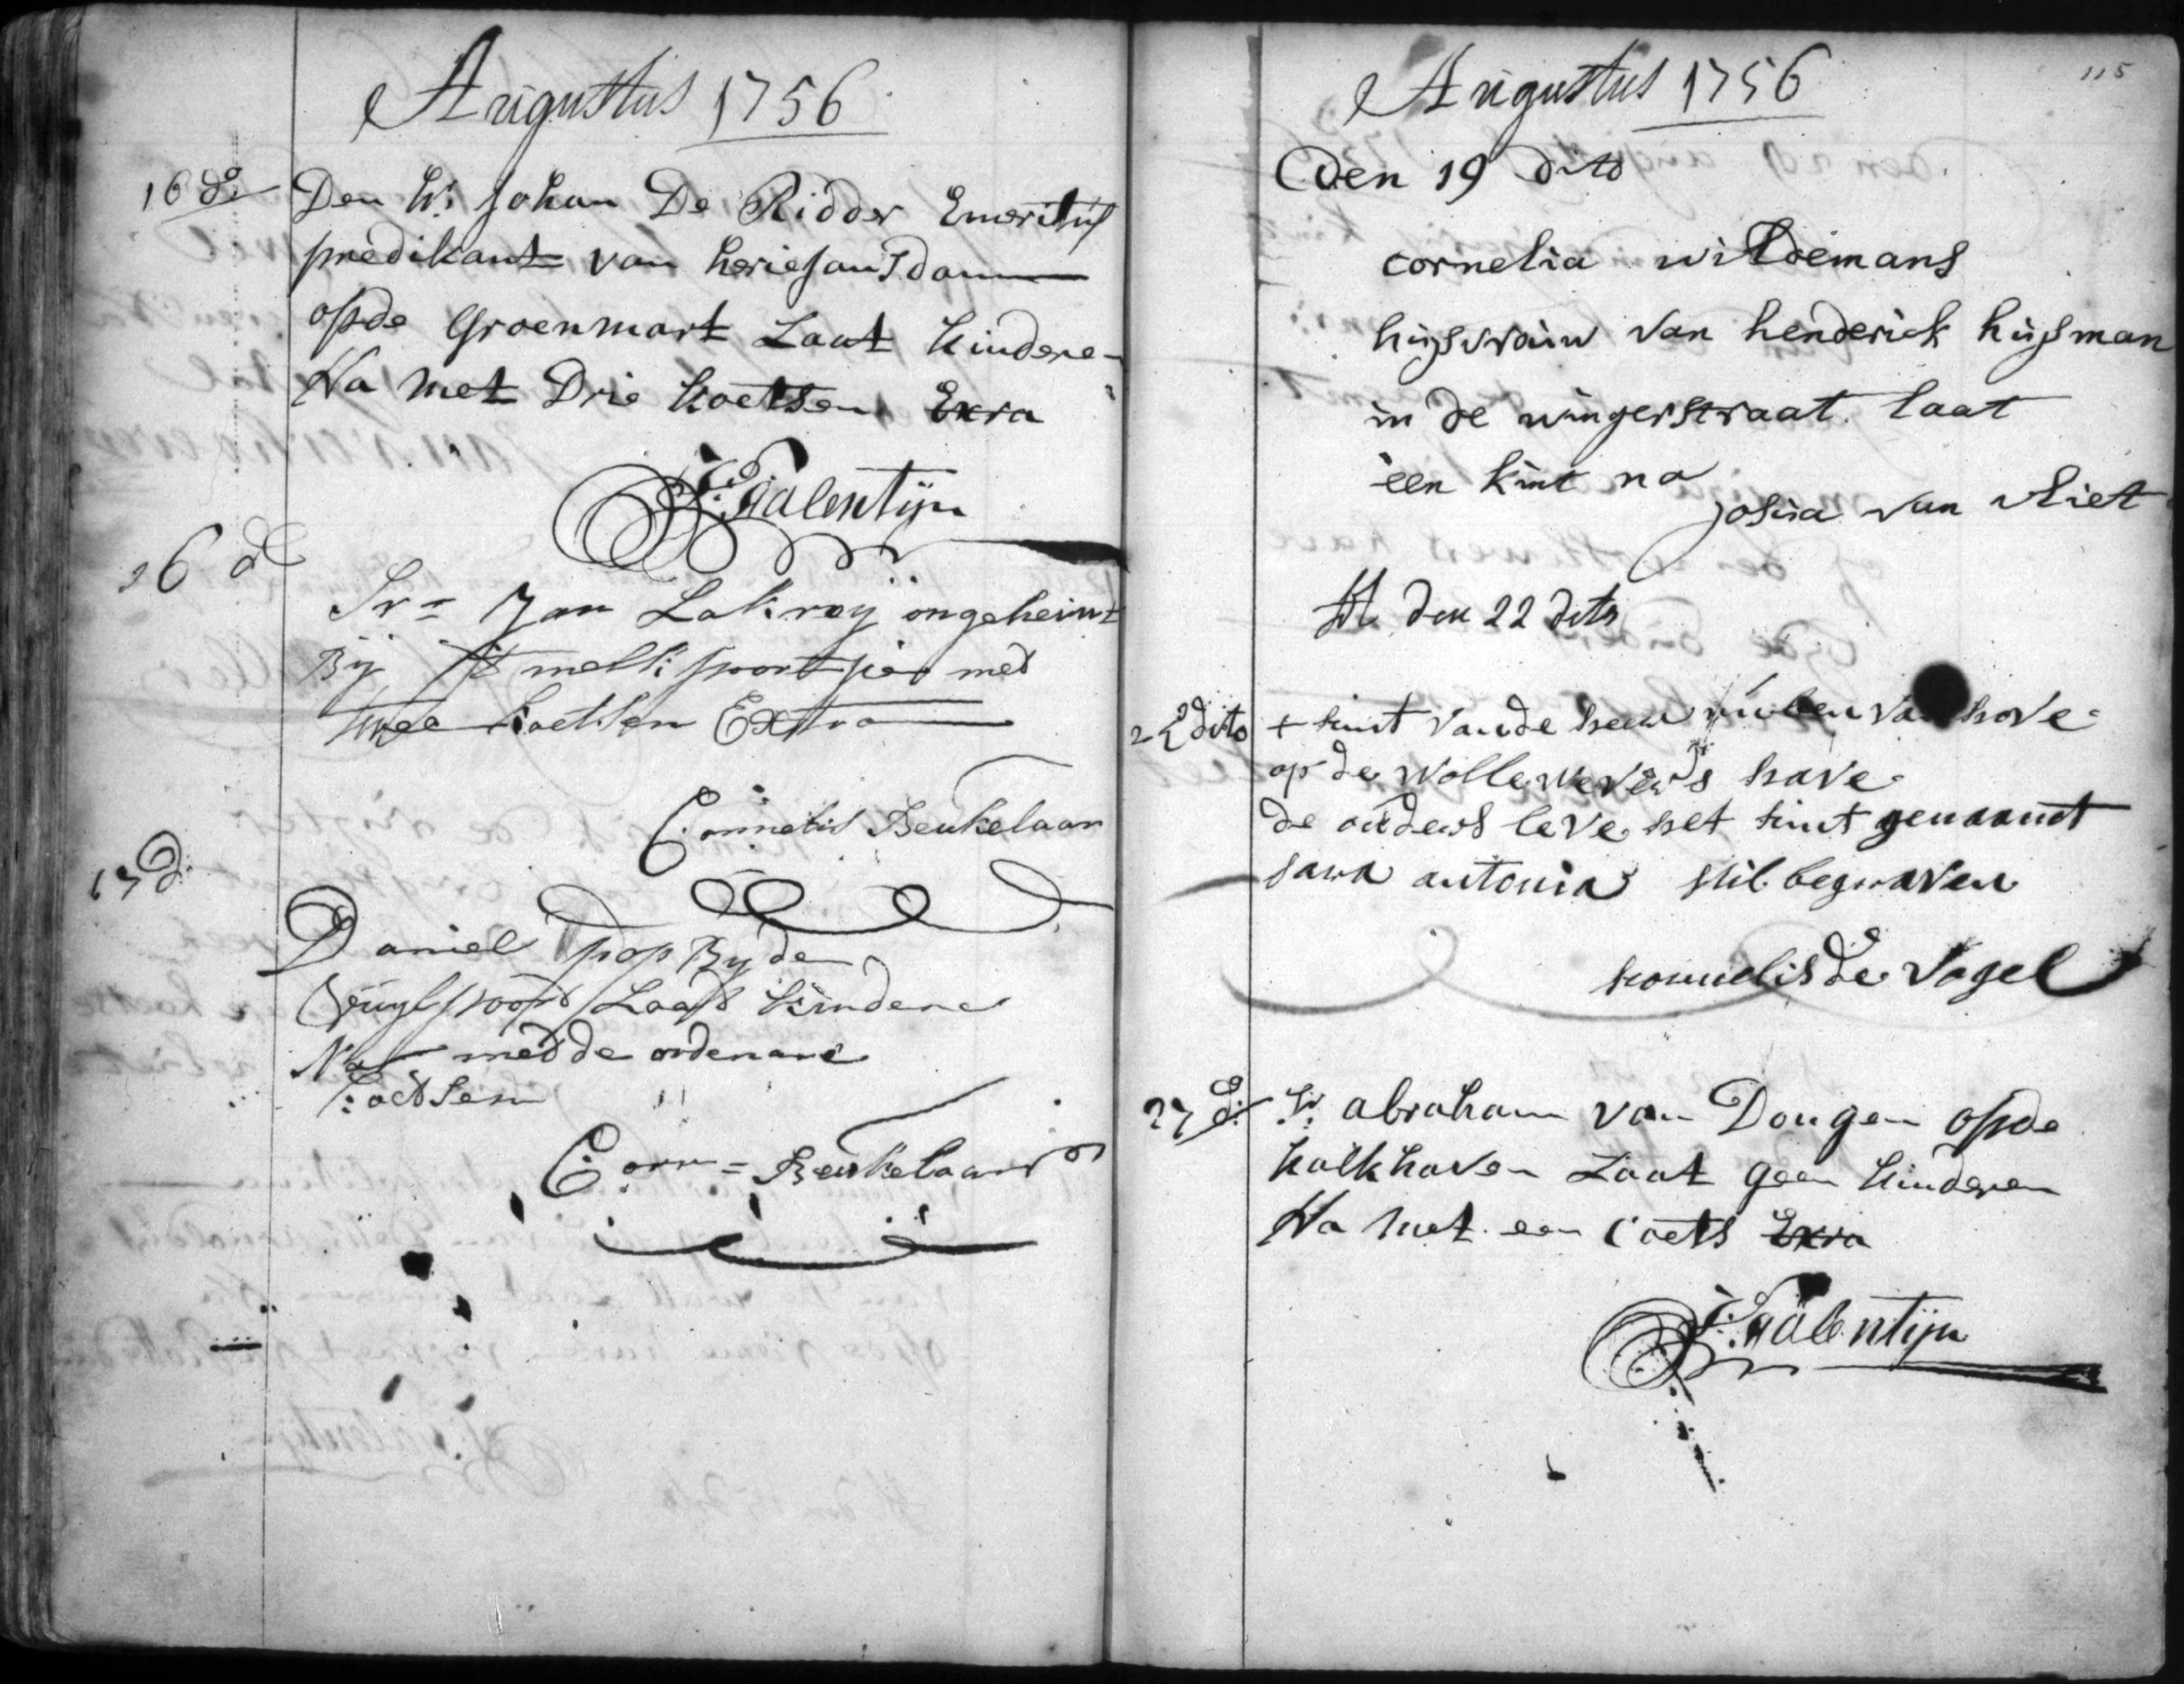 Augustus 1756
16 d:
Den W: Johan De Ridder Emeritus
predikant van heriejansdam
opde Groenmart Laat kindere
Na met Drie koetsen Exra
Valentijn
16 d
Sr= Jan Lakroij ongeheint
Bij 't melk poortjes met
twee koetsen Extra
Cornelis Beukelaar
17 d:
Daniel pop Bij de
Vuijlpoort Laat kindere
Na met de ordenare
koetsen
Corn= Beukelaar
115
Augustus 1756
Den 19 dito
cornelia wildemans
huijsvrouw van henderick huijsman
in de wingerstraat laat
een kint na
josua van vliet
den 22 dito
22 dito
t kint vande heer van hove
op de Wollewevers have
de ouders leve het kint genaamt
sara antonia stil begraven
kornelis de Vogel
27 d:
Sr: abraham van Dongen opde
kalkhaven Laat geen kinderen
Na met een coets Exra
Valentijn